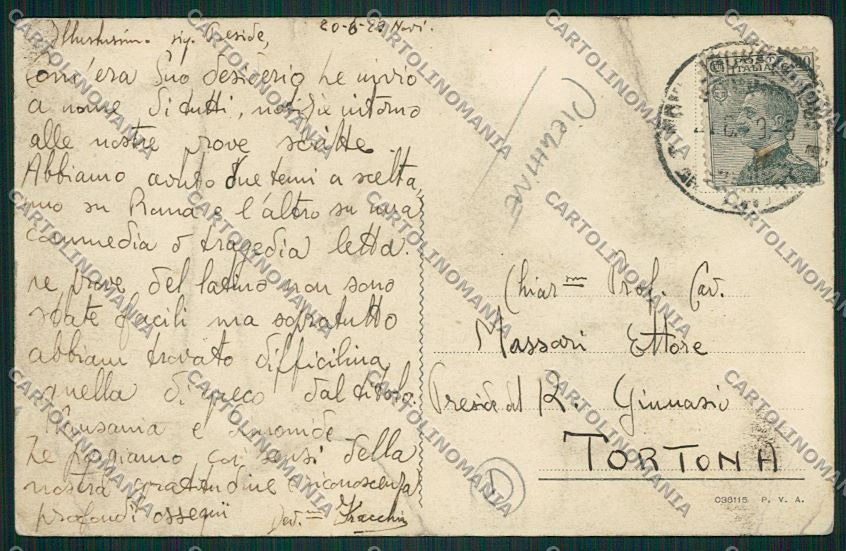 Illustrissim. sig. Preside,
20-6-29 Novi.
Com'era Suo desiderio Le invio
a nome di tutti, notizie intorno
alle nostre prove scritte.
Abbiamo avuto due temi a scelta,
uno su Roma e l'altro su una
commedia o tragedia letta.
Le prove del latino non sono
state facili ma sopratutto
abbiam trovato difficilina,
quella di greco dal titolo:
Pausania e
Le porgiamo coi sensi della
nostra gratitudine e riconoscenza
profondi ossequi
Dev.mo
PIEGHINE
POSTE
ITALIANE
Chiar.mo Prof. Cav.
Massari Ettore
Preside del R. Ginnasio
TORTONA
1
038115 P. V. A.
CARTOLINOMANIA